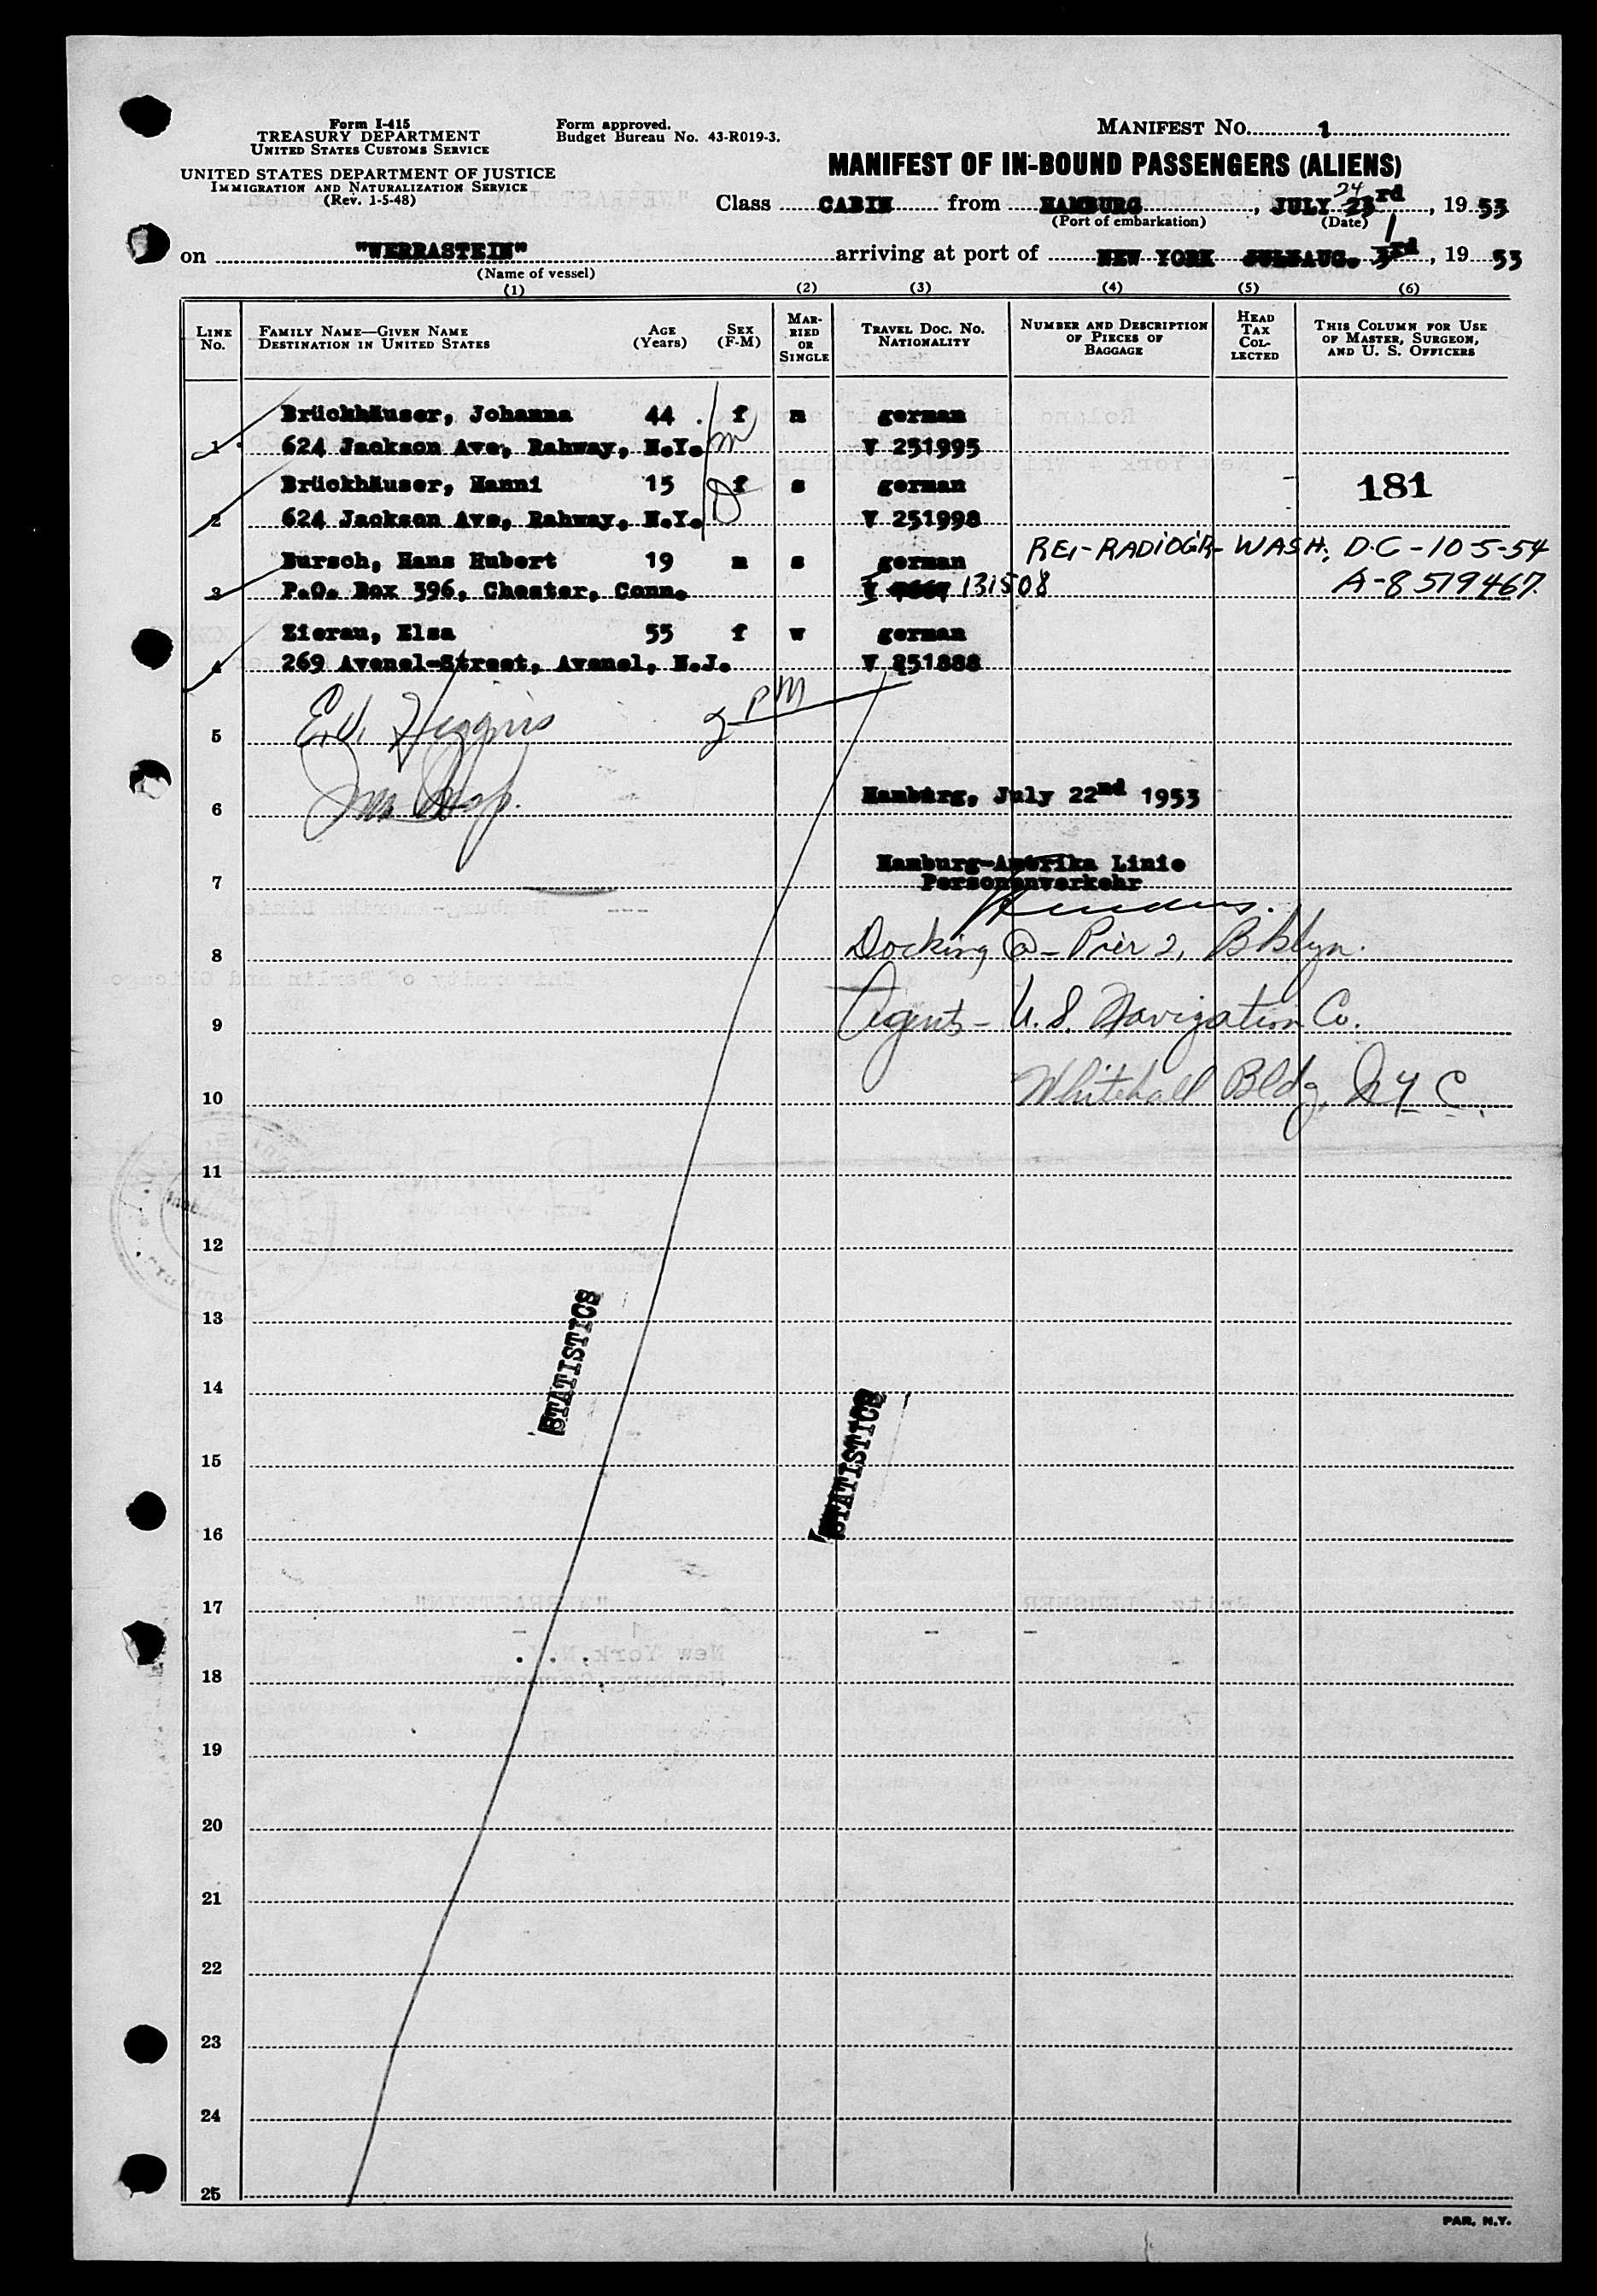 Form I-415
TREASURY DEPARTMENT
UNITED STATES CUSTOMS SERVICE
UNITED STATES DEPARTMENT OF JUSTICE
IMMIGRATION AND NATURALIZATION SERVICE
(Rev. 1-5-48)
Form approved.
Budget Bureau No. 43-R019-3.
MANIFEST NO. 1
MANIFEST OF IN-BOUND PASSENGERS (ALIENS)
Class CABIN from HAMBURG, JULY 23rd 24, 19 53
(Port of embarkation) (Date)
on "WERRASTEIN" arriving at port of NEW YORK AUG. 3rd 1, 19 53
(Name of vessel)
(1) (2) (3) (4) (5) (6)
LINE No.
FAMILY NAME—GIVEN NAME
DESTINATION IN UNITED STATES
AGE (Years)
SEX (F-M)
MARRIED OR SINGLE
TRAVEL DOC. NO. NATIONALITY
NUMBER AND DESCRIPTION OF PIECES OF BAGGAGE
HEAD TAX COLLECTED
THIS COLUMN FOR USE OF MASTER, SURGEON, AND U. S. OFFICERS
Brückhäuser, Johanna 44 f m german
1 624 Jackson Ave, Rahway, N.Y. M V 251995
Brückhäuser, Hanni 15 f s german 181
2 624 Jackson Ave, Rahway, N.Y. D V 251998
Bursch, Hans Hubert 19 m s german RE,-RADIOGR- WASH; D.C-10-5-54
3 P.O. Box 396, Chester, Conn. I 131508 A-8 519467.
Zierau, Elsa 55 f w german
4 269 Avenel-Street, Avenel, N.J. V 251888
5 E.V. Higgins 2 PM
6 Imm Insp. Hamburg, July 22nd 1953
7 Hamburg-Amerika Linie
Personenverkehr
8 Docking @ - Pier 2, Bklyn.
9 Agents - U.S. Navigation Co.
10 Whitehall Bldg, NYC.
11
12
13
STATISTICS
14
STATISTICS
15
16
17
18
19
20
21
22
23
24
25
PAR, N.Y.